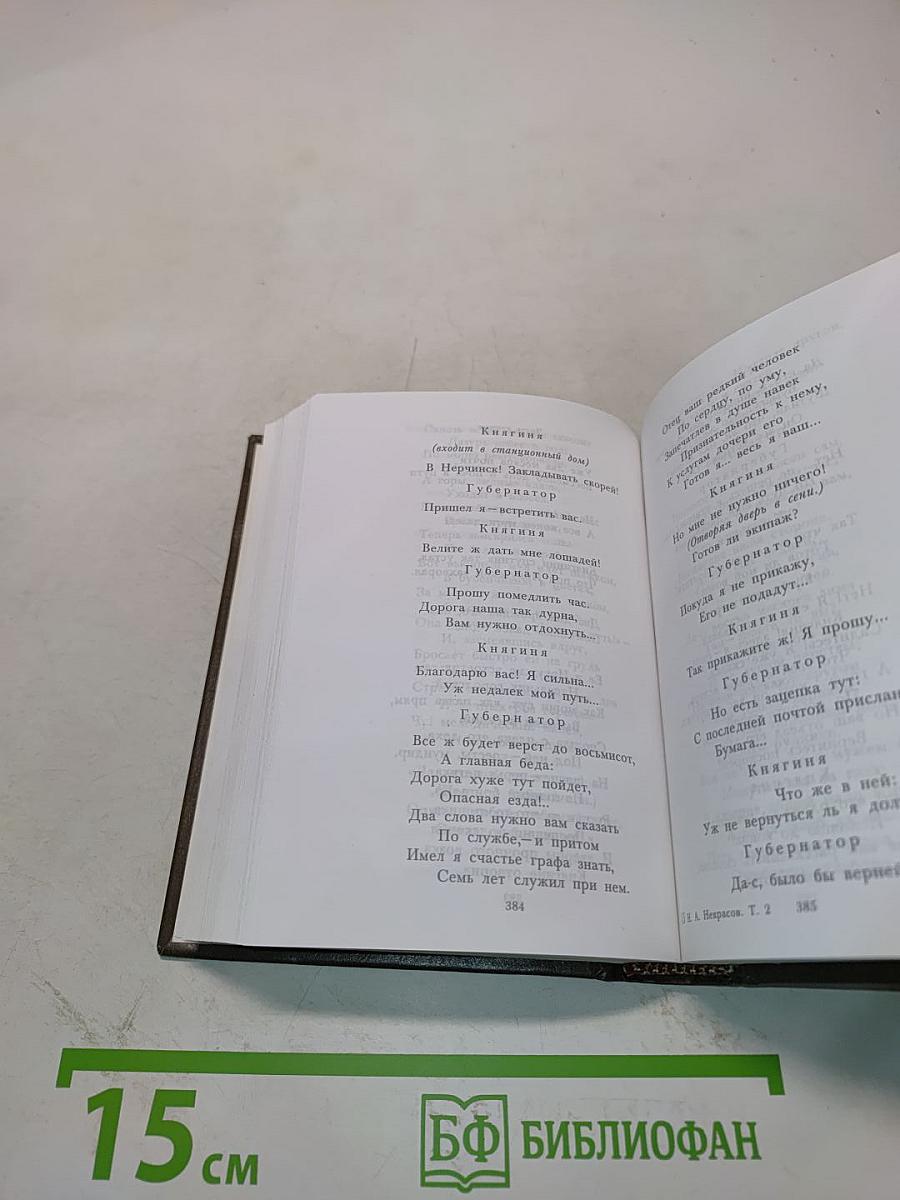 Княгиня
(входит в станционный дом)
В Нерчинск! Закладывать скорей!
Губернатор
Пришел я—встретить вас.
Княгиня
Велите ж дать мне лошадей!
Губернатор
Прошу помедлить час.
Дорога наша так дурна,
Вам нужно отдохнуть...
Княгиня
Благодарю вас! Я сильна...
Уж недалек мой путь...
Губернатор
Все ж будет верст до восьмисот,
А главная беда:
Дорога хуже тут пойдет,
Опасная езда!..
Два слова нужно вам сказать
По службе,—и притом
Имел я счастье графа знать,
Семь лет служил при нем.
384
Отец ваш редкий человек
По сердцу, по уму,
Запечатлев в душе навек
Признательность к нему,
К услугам дочери его
Готов я... весь я ваш...
Княгиня
Но мне не нужно ничего!
(Отворяя дверь в сени.)
Готов ли экипаж?
Губернатор
Покуда я не прикажу,
Его не подадут...
Княгиня
Так прикажите ж! Я прошу...
Губернатор
Но есть зацепка тут:
С последней почтой прислан
Бумага...
Княгиня
Что же в ней:
Уж не вернуться ль я дол
Губернатор
Да-с, было бы верней
Н. А. Некрасов. Т. 2 385
15 см
БФ БИБЛИОФАН